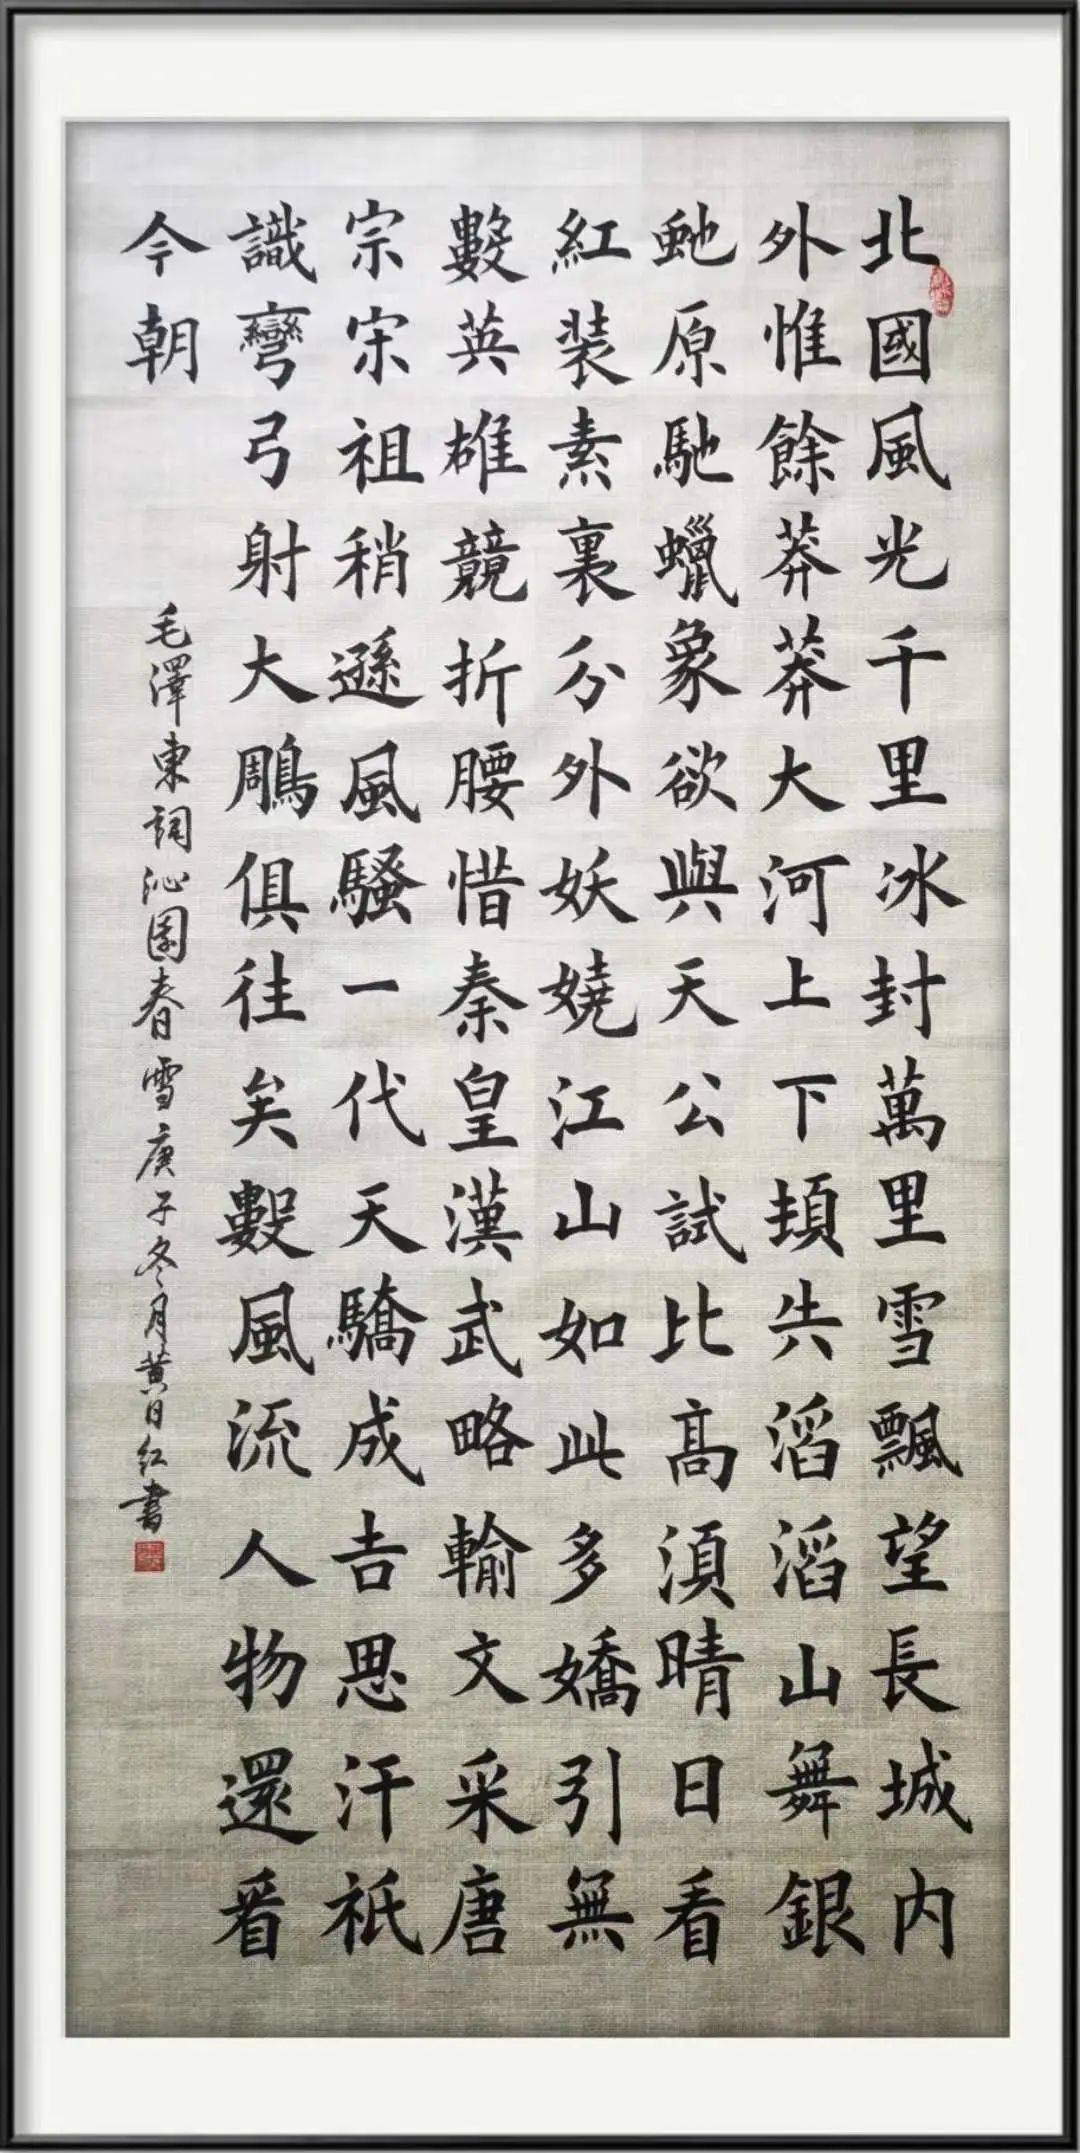 北國風光千里冰封萬里雪飄望長城內
外惟餘莽莽大河上下頓失滔滔山舞銀
虵原馳蠟象欲與天公試比高須晴日看
紅裝素裹分外妖嬈江山如此多嬌引無
數英雄競折腰惜秦皇漢武略輸文采唐
宗宋祖稍遜風騷一代天驕成吉思汗祇
識彎弓射大鵰俱往矣數風流人物還看
今朝
毛澤東詞沁園春雪庚子冬月黄日红書